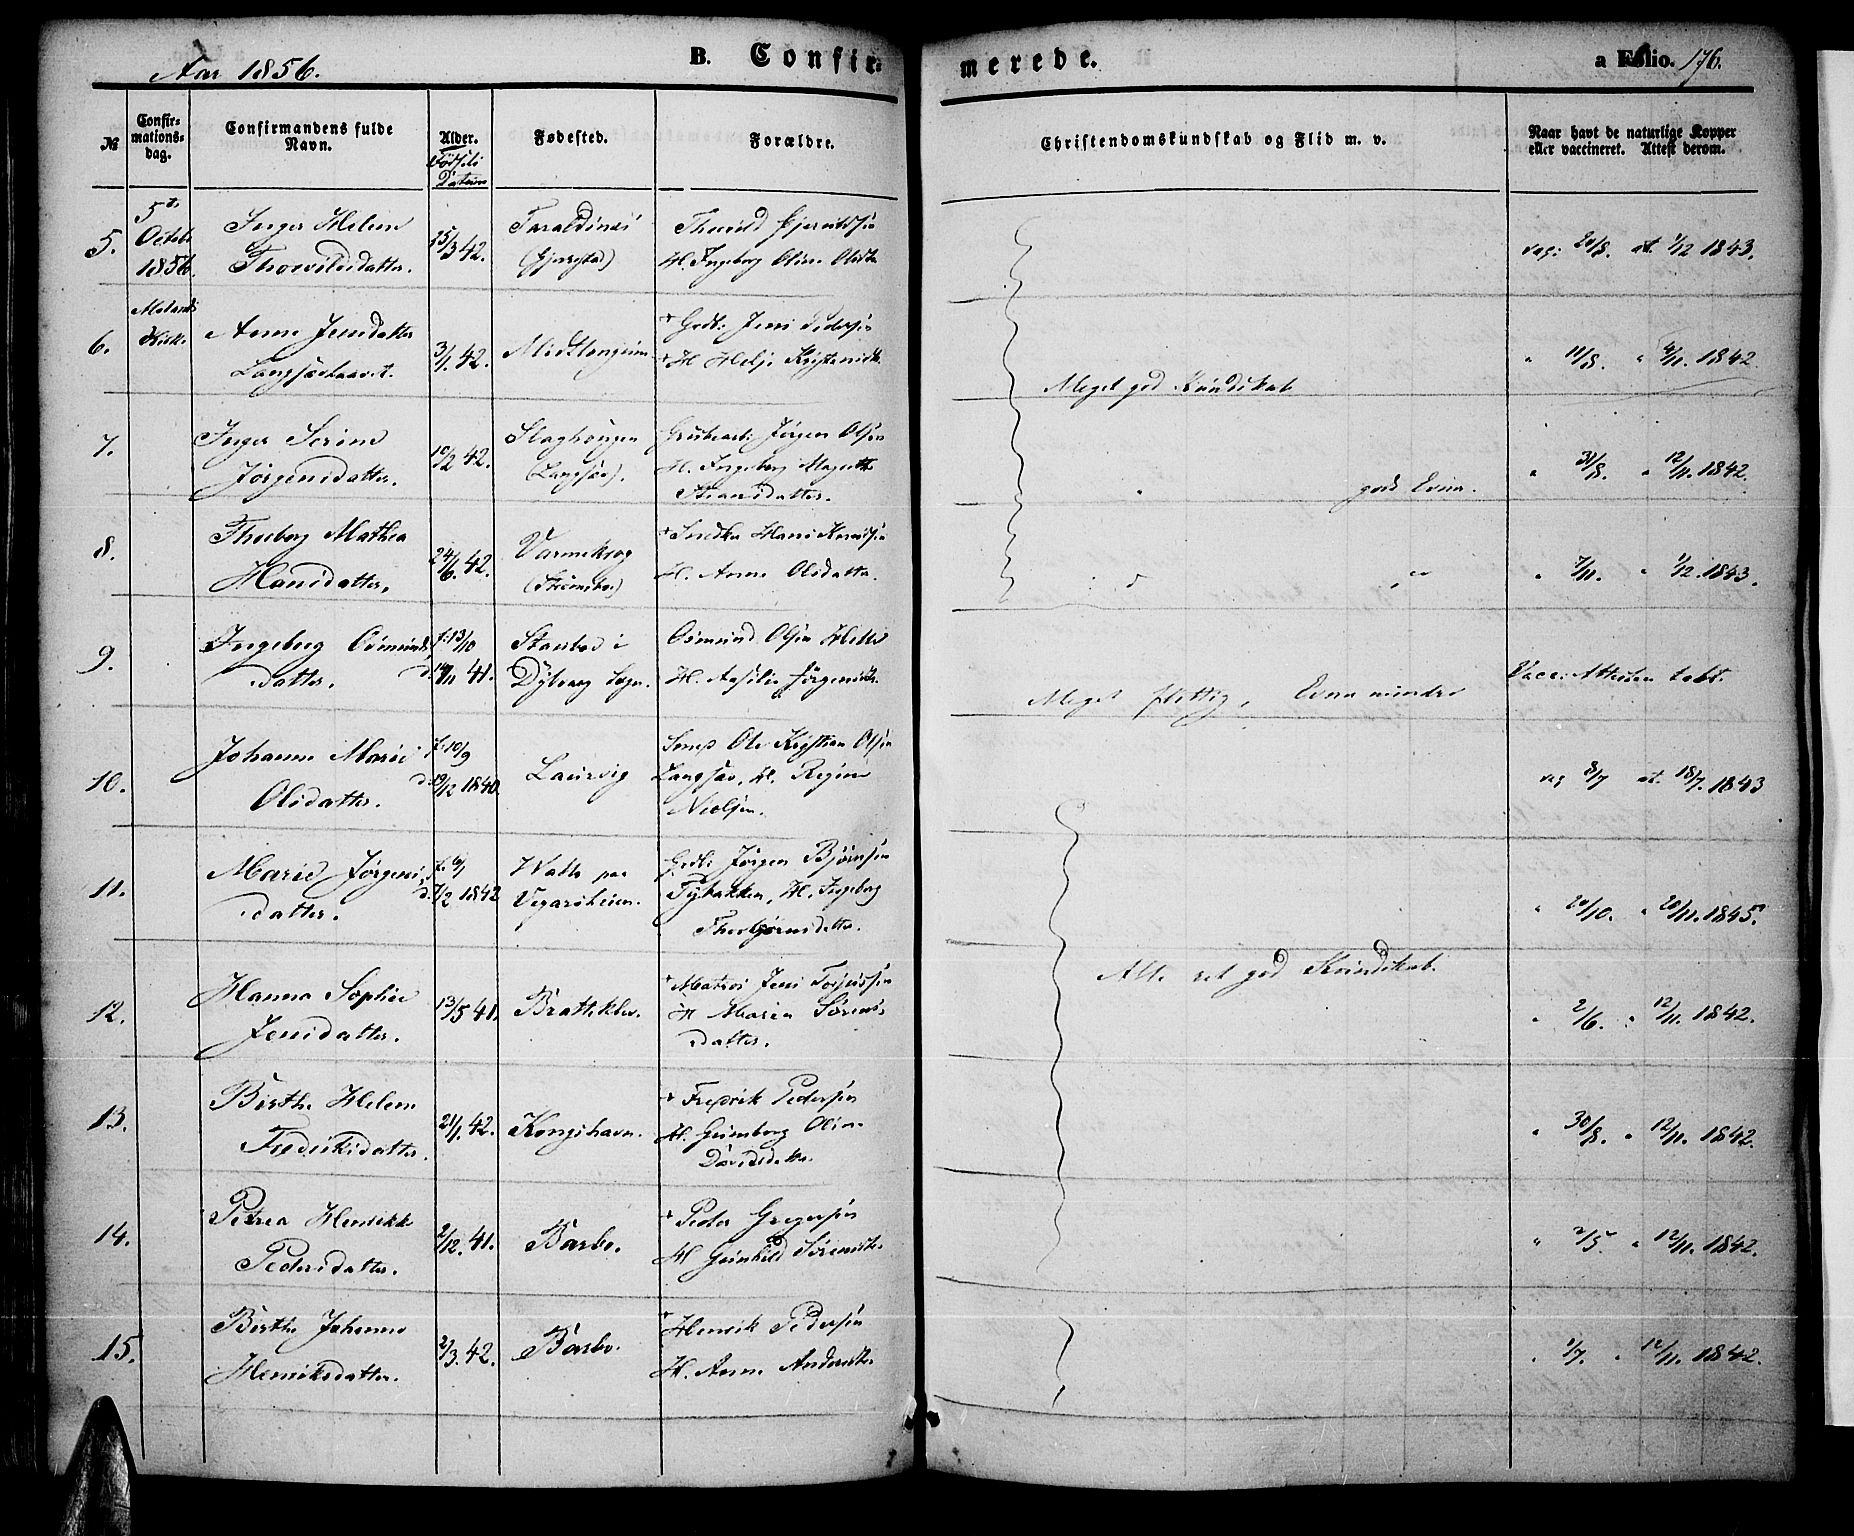 Aar 1856.
B. Confir-
merede.
a Folio. 176.
№
Confir-
mations-
dag.
Confirmandens fulde
Navn.
Alder.
Fødsels
Datum
Fødested.
Forældre.
Christendomskundskab og Flid m. v.
Naar havt de naturlige Kopper
eller vaccineret. Attest derom.
5.
5te
Octob.
1856.
Inger Helene
Thorvildsdatter.
15/3 42.
(Gjerrstad)
H. Ingeborg Oline Olsdtr
vac: 20/8. at. 1/12 1843.
6.
Kirke
Anne Jensdatter
3/1. 42.
+ Gdb: Jens Pedersen
Meget god Kundskab
" 11/8. " 4/11. 1842.
7.
Inger Serine
Jørgensdatter.
10/2 42.
(Langsæe).
Jørgen Olsen
H. Ingeborg
" god Evne.
" 31/8. " 12/11. 1842.
8.
Thorborg Mathea
Hansdatter.
24/6. 42.
H. Anne Olsdatter.
" 7/11. " 1/12. 1843.
9.
Ingeborg Osmunds
datter.
f. 13/10
d. 14/11 41.
Stanbod i
Dybvaag Sogn.
Osmund Olsen
Meget flittig, Evne mindre
Vacc: Attesten tabt.
10.
Johanne Marie
Olsdatter.
f. 10/9
d. 19/12 1840.
Laurvig
Ole Kristian Olsen
Langsæe, H. Regine
Nielsen.
vac 8/7 at. 18/7. 1843
11.
Marie Jørgens
datter.
d. 7/2 1842
Vegarsheien.
Gdb: Jørgen Bjørnsen
H. Ingeborg
Thorbjørnsdatter.
" 20/10. " 20/11. 1845.
12.
Hanna Sophie
Jensdatter.
13/5 41.
Bratteklev.
+ Matros Jens
H Maren Sørens-
datter.
Alle ret god Kundskab.
" 2/6. " 12/11. 1842.
13.
Birthe Helene
Fredriksdatter.
21/1. 42.
Kongshavn.
+ Fredrik Pedersen
H. Gunborg Oline
Davidsdatter.
" 30/8. " 12/11. 1842.
14.
Petrea Henrikke
Pedersdatter.
2/12. 41.
Barbo.
+ Peder Gregersen
H Gunhild Sørensdtr.
" 2/5. " 12/11. 1842.
15.
Birthe Johanne
Henriksdatter.
2/3. 42.
Barbo.
+ Henrik Pedersen
H. Anne Andersdtr.
" 1/7. " 12/11. 1842.